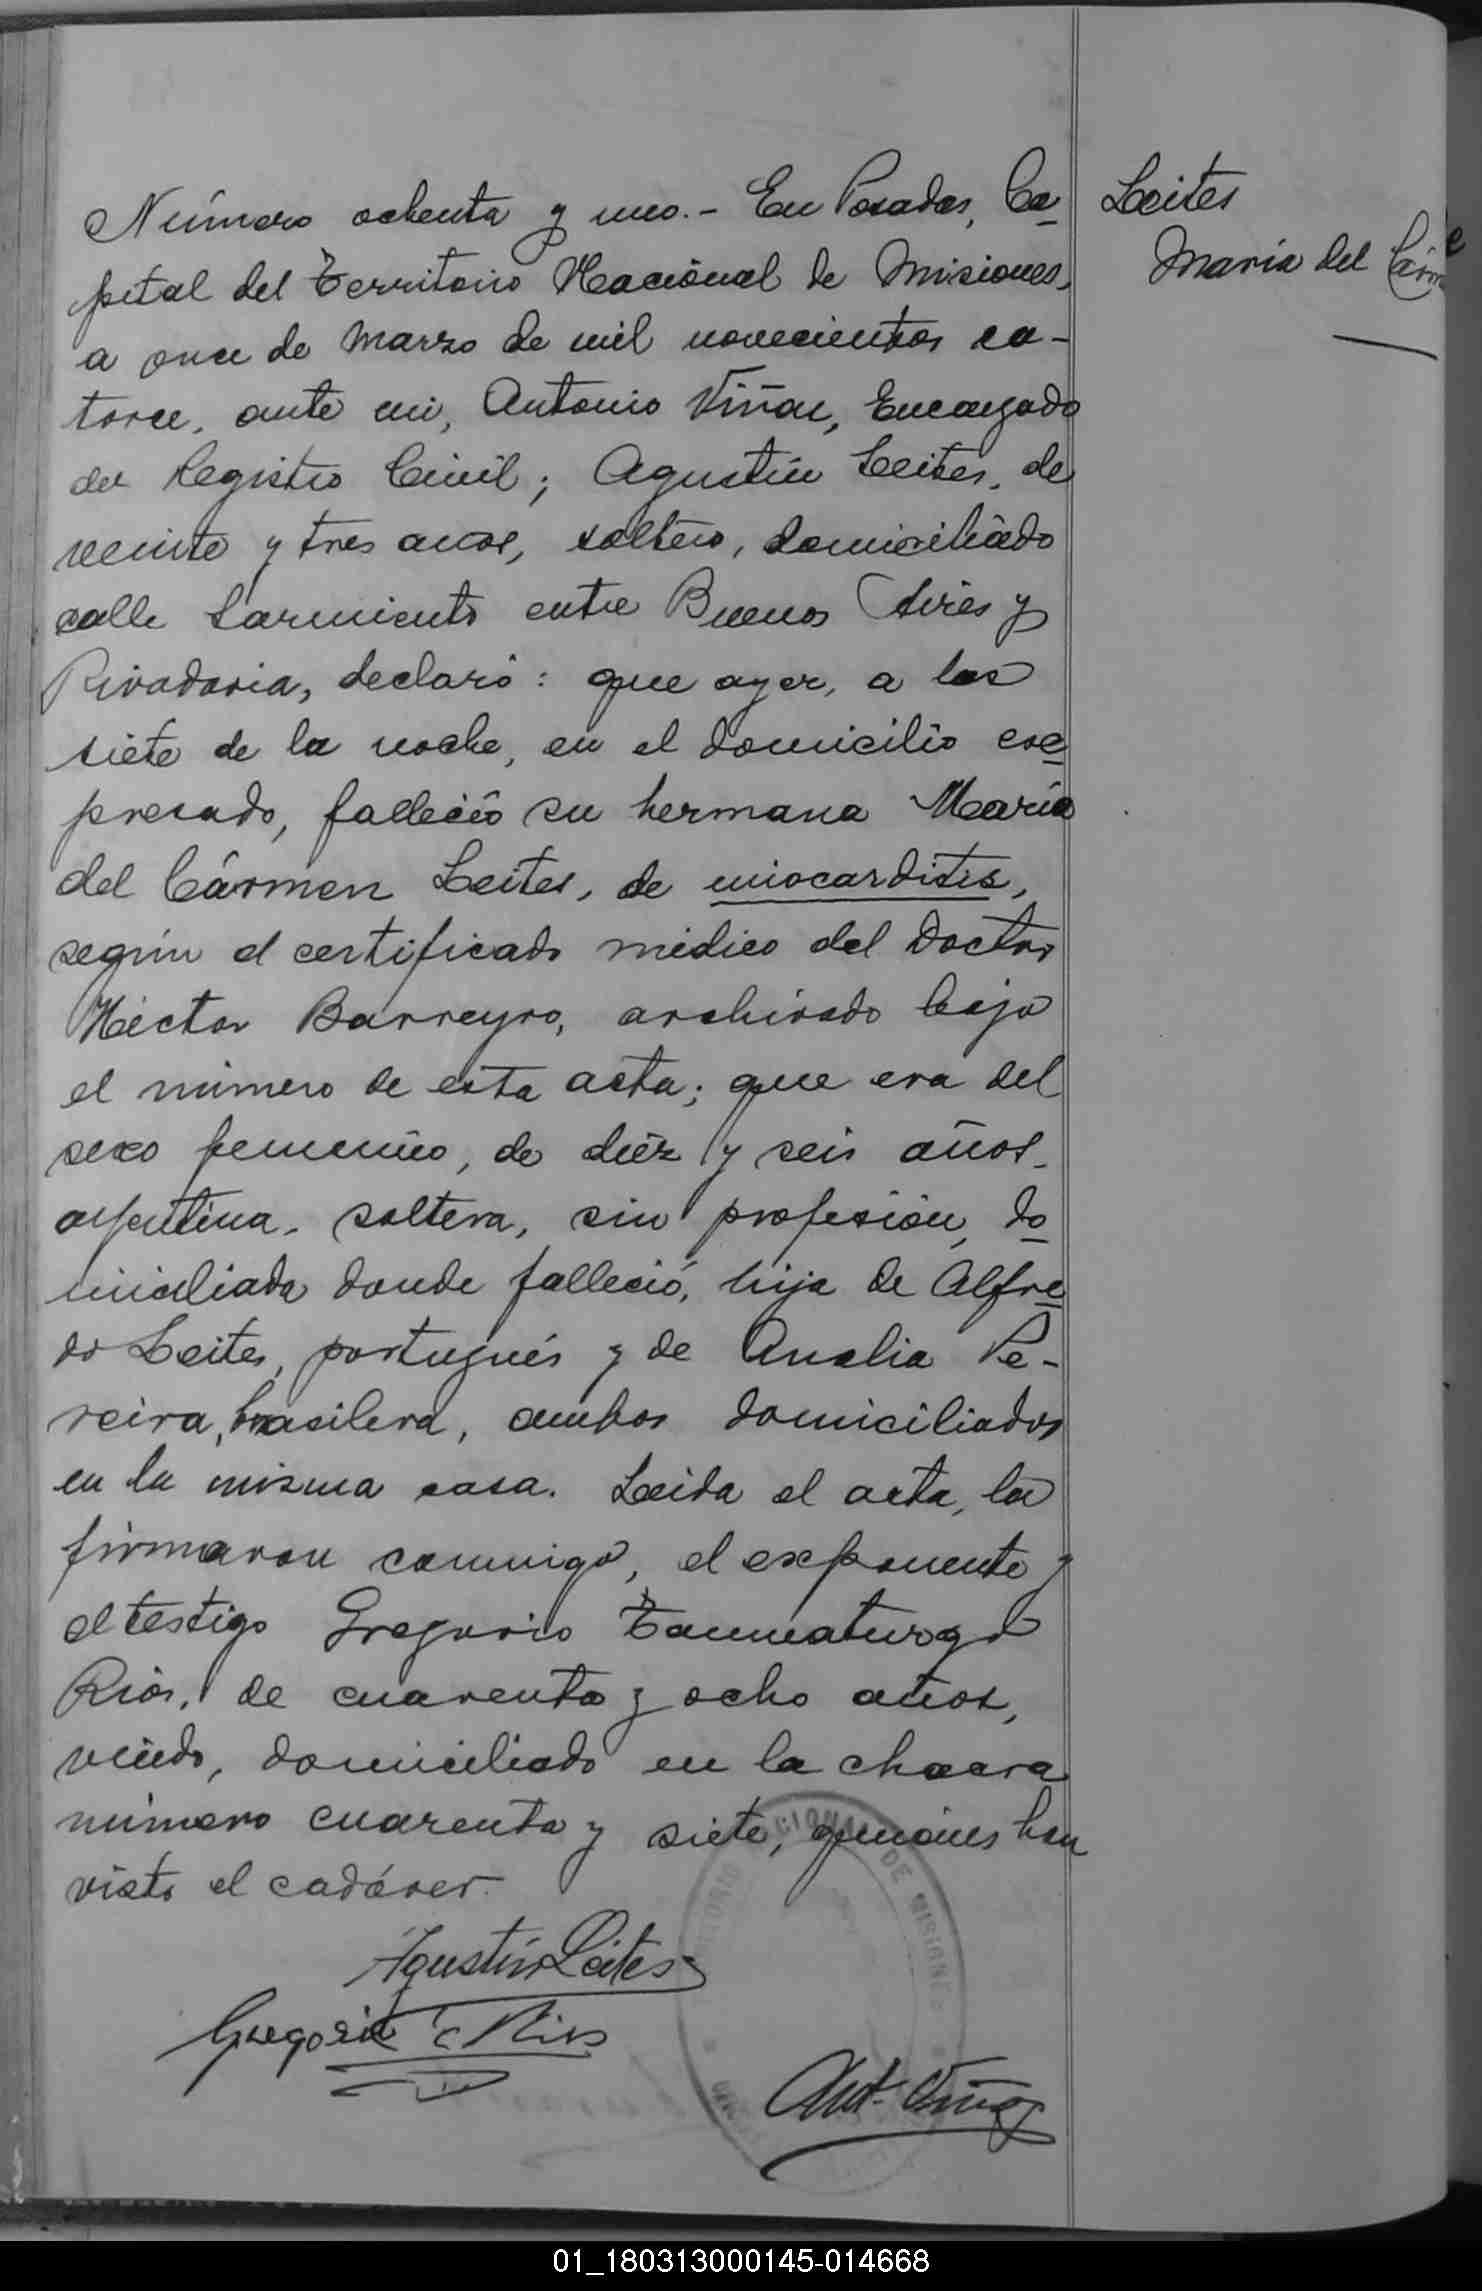 Número ochenta y uno.- En Posadas, Ca-
pital del Territorio Nacional de Misiones,
a once de Marzo de mil novecientos ca-
torce, ante mi, Antonio Viñas, Encargado
del Registro Civil; Agustin Leites, de
veinte y tres anos, soltero, domiciliado
calle Sarmiento entre Buenos Aires y
Rivadavia, declaró: que ayer, a las
siete de la noche, en el domicilio ex-
presado, falleció su hermana María
del Cármen Leites, de miocarditis,
según el certificado médico del Doctor
Héctor Barreyro, archivado bajo
el número de esta acta; que era del
sexo femenino, de diéz y seis años,
argentina, soltera, sin profesión, do-
miciliada donde falleció, hija de Alfre-
do Leites, portugués y de Analia Pe-
reira, brasilera, ambos domiciliados
en la misma casa. Leida el acta, la
firmaron conmigo, el exponente y
el testigo Gregorio Taumaturgo
Rios, de cuarenta y ocho años,
viudo, domiciliado en la chacra
número cuarenta y siete, quiénes han
visto el cadáver.
Agustin Leites
Gregorio T Rios
Ant. Viñas
Leites
María del Cárme
NACIONAL DE MISIONES
01_180313000145-014668